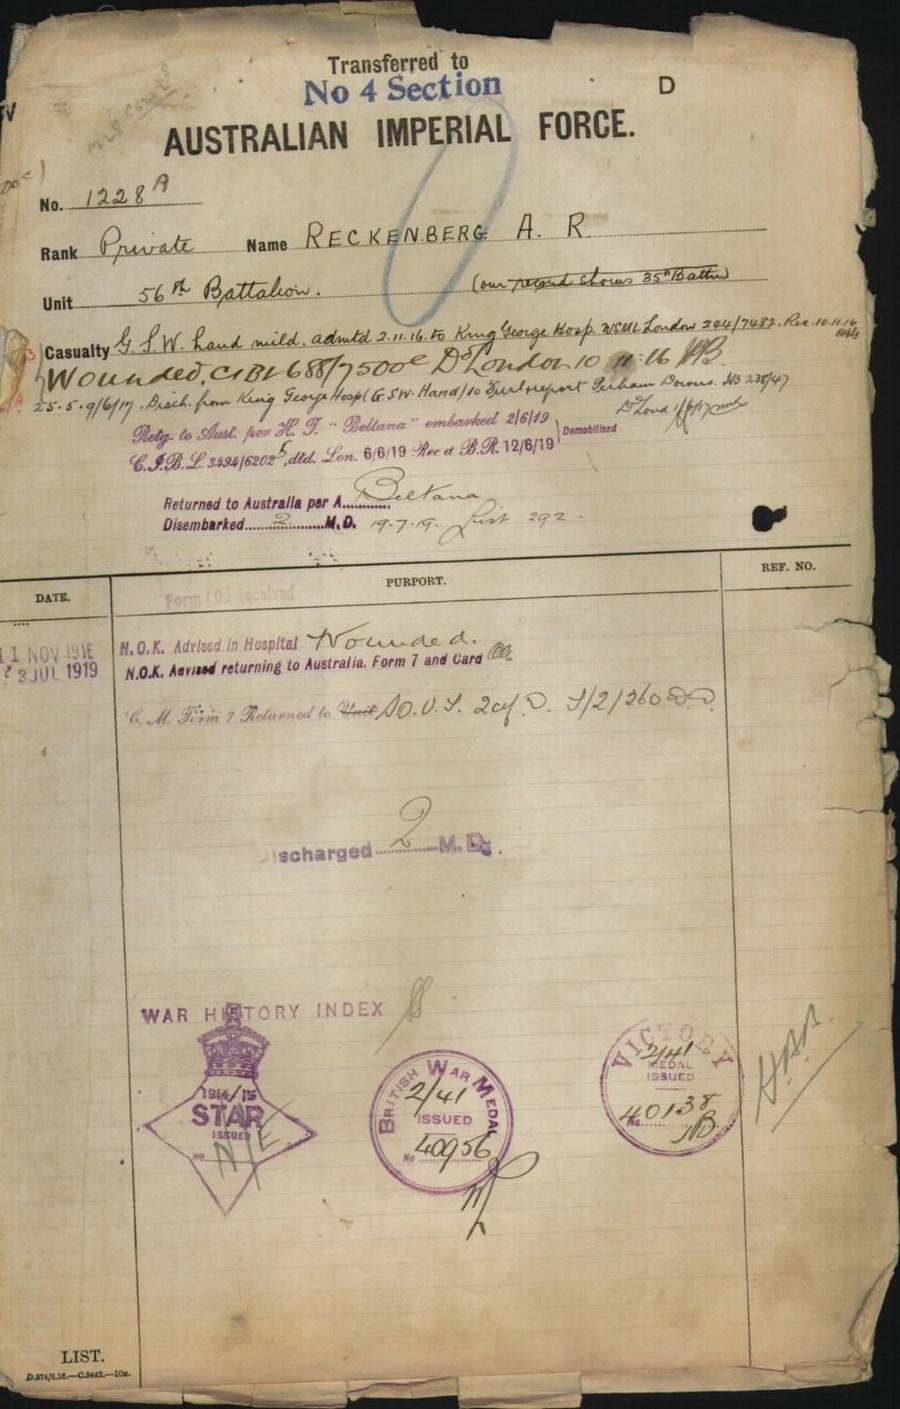 Transferred to
No 4 Section
D
AUSTRALIAN IMPERIAL FORCE.
No. 1228 A
Rank Private Name RECKENBERG A. R.
Unit 56th Battalion. (our record shows 35th Battn)
Casualty G.S.W. hand mild. admtd 2.11.16. to King George Hosp. London 244/7482. Rec. 10.11.16
Wounded, London 10 11.16
25.5.9/6/17. Disch. from King George Hosp (G.S.W. Hand) to Perham Downs.
Retg. to Aust. per H. T. "Beltana" embarked 2/6/19
Demobilised
C.I.B.L. 3494/6202 5, dtd. Lon. 6/6/19 Rec d B.R. 12/6/19
Returned to Australia per A............ Beltana
Disembarked.......2.........M.D. 19-7-19. List 292.
DATE.
PURPORT.
REF. NO.
Form 103 received
11 NOV 1916 N.O.K. Advised in Hospital Wounded.
23 JUL 1919 N.O.K. Advised returning to Australia. Form 7 and Card
C. M. Form 7 Returned to Unit
Discharged 2 M. D.
WAR HISTORY INDEX
1914/15
STAR
ISSUED
No N/E
BRITISH WAR MEDAL
2/41
ISSUED
No 40956
VICTORY
2/41
MEDAL
ISSUED
40138
No
LIST.
D.974/8.16.—C.9442.—10m.